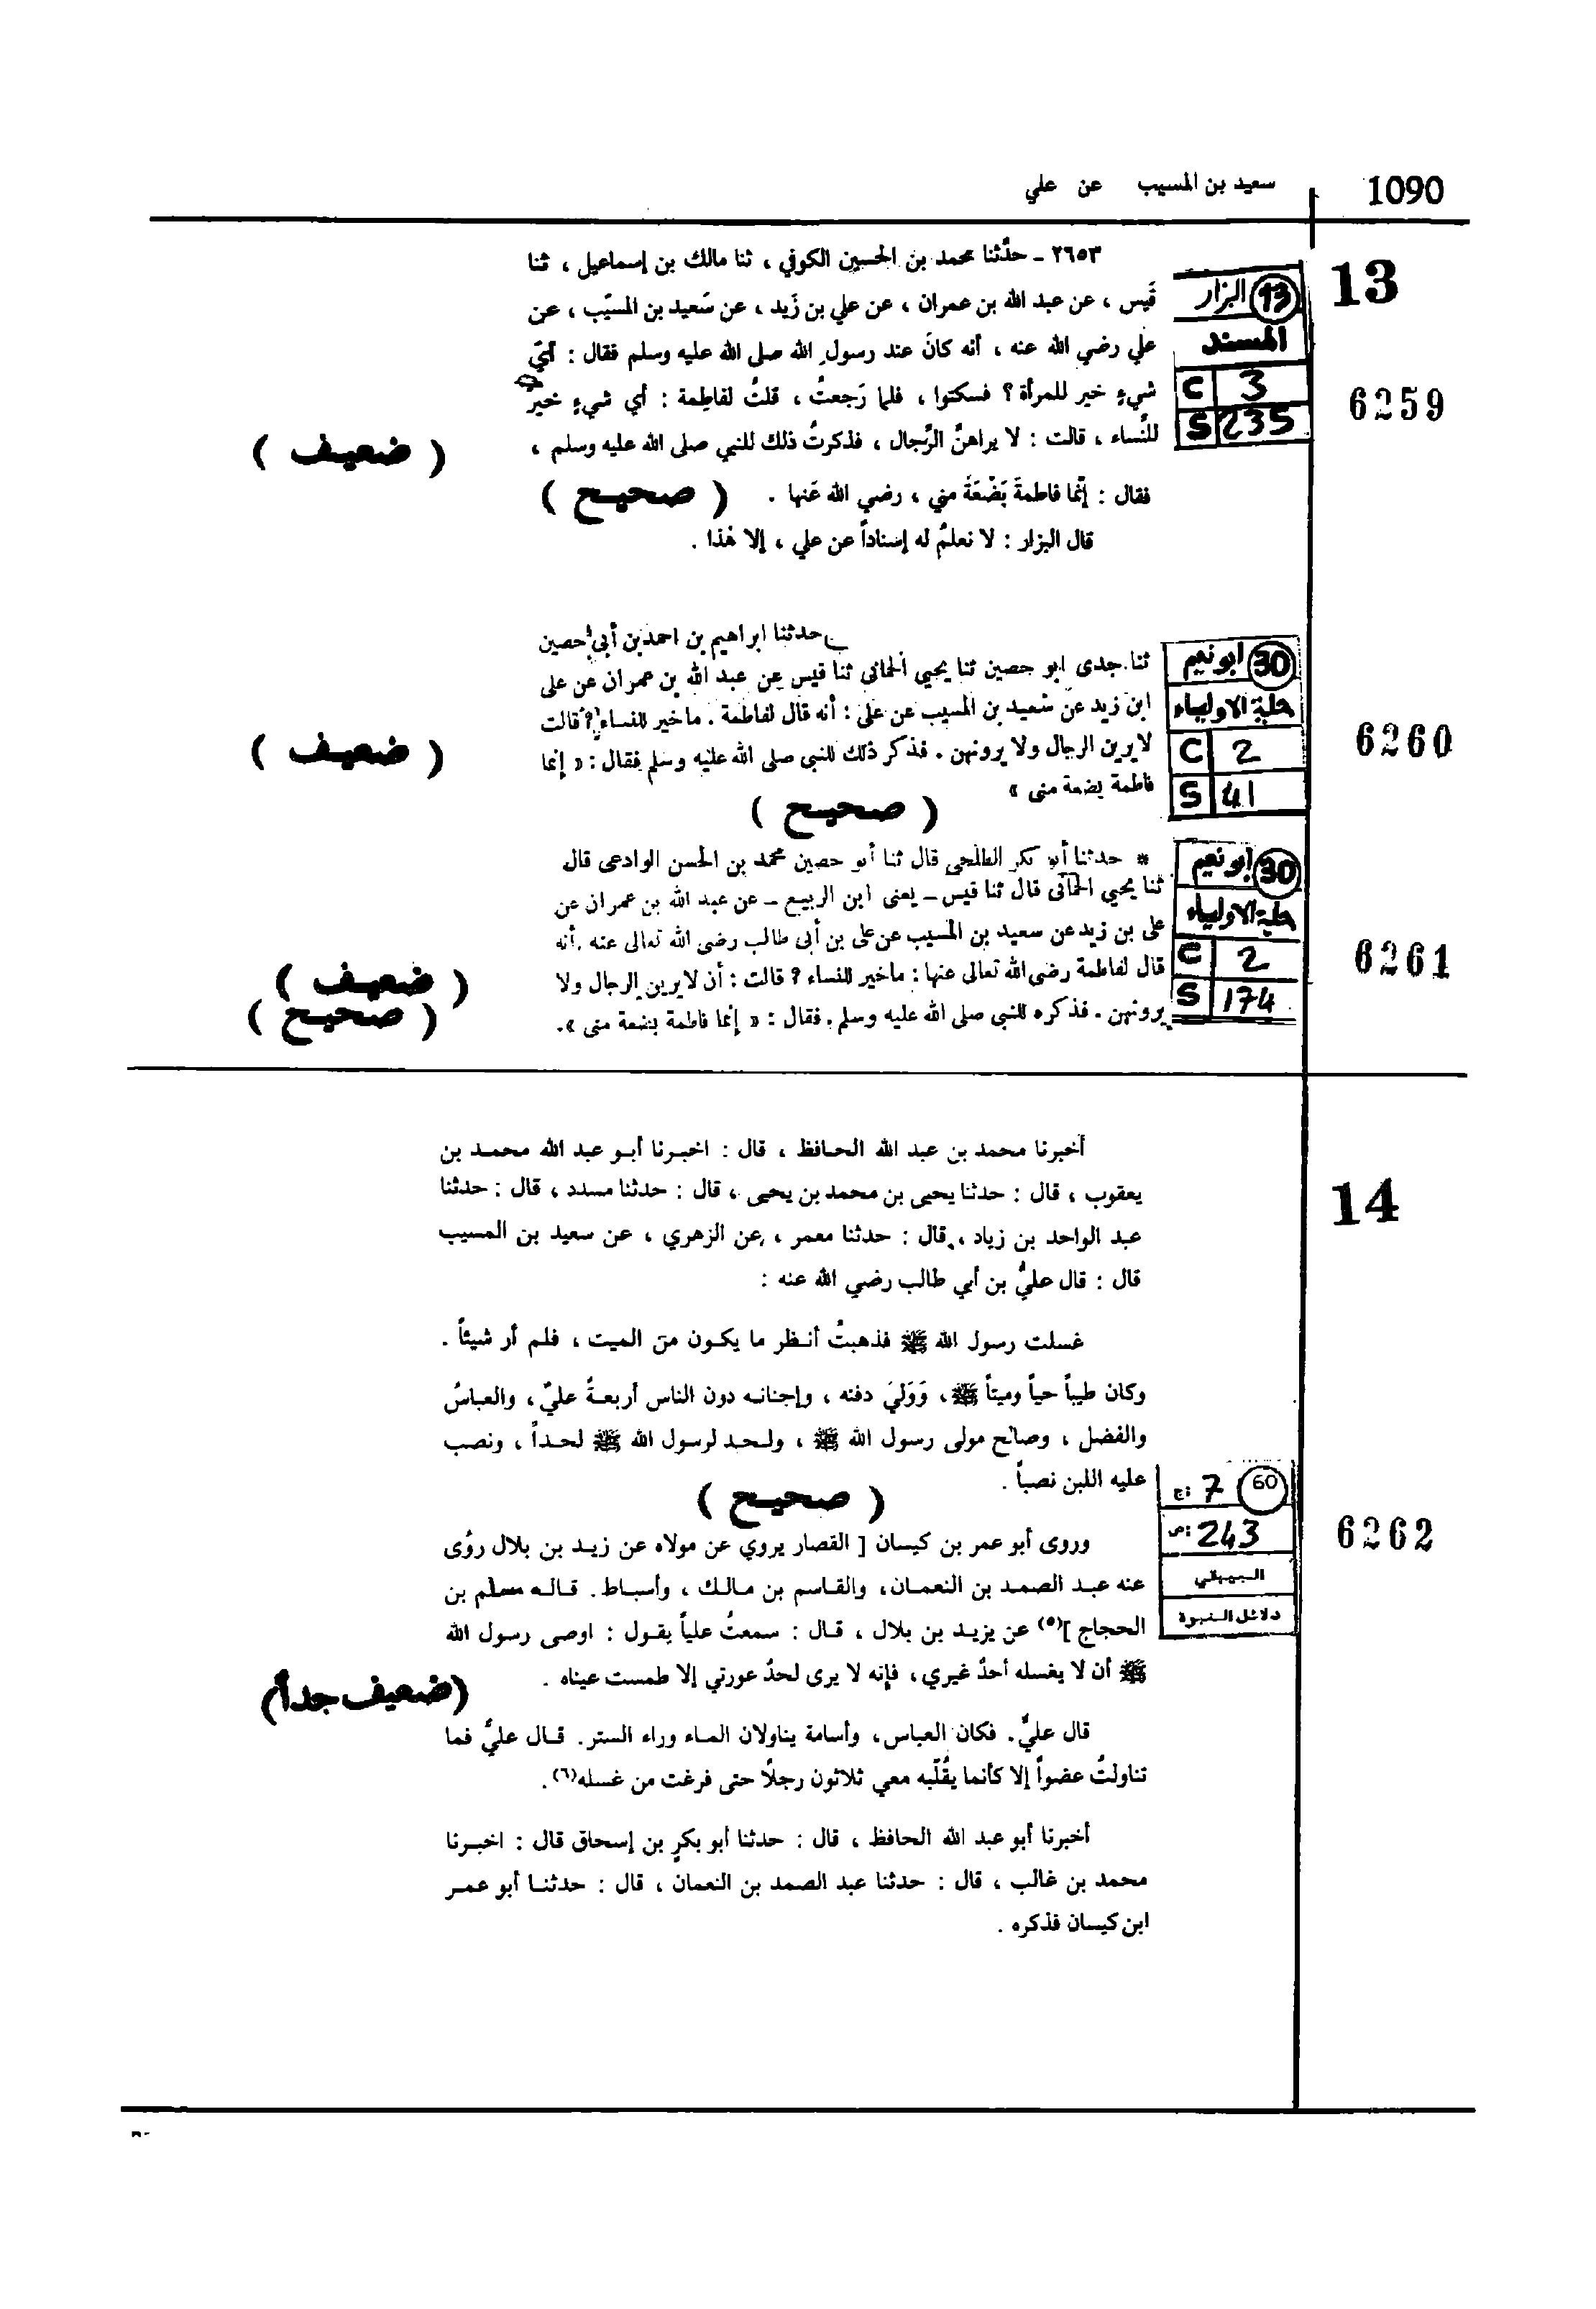 1090
سعيد بن المسيب عن علي
13
٢٦٥٣ ـ حدَّثنا محمد بن الحسين الكوفي ، ثنا مالك بن إسماعيل ، ثنا
قَيس ، عن عبد الله بن عمران ، عن علي بن زَيد ، عن سَعيد بن المسيّب ، عن
علي رضي الله عنه ، أنه كانَ عند رسول الله صلى الله عليه وسلم فقال : أيّ
شيءٍ خير للمرأة ؟ فسكتوا ، فلما رَجعتُ ، قلتُ لفاطِمة : أي شيءٍ خيرٌ
للنِّساء ، قالت : لا يراهنَّ الرِّجال ، فذكرتُ ذلك للنبي صلى الله عليه وسلم ،
( ضعيف )
فقال : إنَّما فاطمةَ بَضْعَةَ مني ، رضي الله عَنها .
( صحيح )
قال البزار : لا نعلمُ له إسناداً عن علي ، إلا هٰذا .
13 البزار
المسند
C 3
S 235
6259
حدثنا ابراهيم بن احمد بن أبي حصين
ثنا جدى ابو حصين ثنا يحيي الحمانى ثنا قيس عن عبد الله بن عمران عن على
ابن زيد عن سعيد بن المسيب عن على : أنه قال لفاطمة . ماخير للنساء ؟ قالت
لا يرين الرجال ولا يرونهن . فذكر ذلك للنبى صلى الله عليه وسلم فقال : « إنما
( ضعيف )
فاطمة بضعة منى »
( صحيح )
30 ابو نعيم
حلية الاولياء
C 2
S 41
6260
* حدثنا أبو بكر الطلحى قال ثنا أبو حصين محمد بن الحسن الوادعى قال
ثنا يحيي الحمانى قال ثنا قيس ـ يعنى ابن الربيع ـ عن عبد الله بن عمران عن
على بن زيد عن سعيد بن المسيب عن على بن أبى طالب رضى الله تعالى عنه . أنه
قال لفاطمة رضى الله تعالى عنها : ماخير للنساء ؟ قالت : أن لا يرين الرجال ولا
( ضعيف )
يرونهن . فذكره للنبى صلى الله عليه وسلم . فقال : « إنما فاطمة بضعة منى ».
( صحيح )
30 ابو نعيم
حلية الاولياء
C 2
S 174
6261
14
أخبرنا محمد بن عبد الله الحافظ ، قال : اخبرنا أبو عبد الله محمد بن
يعقوب ، قال : حدثنا يحيى بن محمد بن يحيى ، قال : حدثنا مسدد ، قال : حدثنا
عبد الواحد بن زياد ، قال : حدثنا معمر ، عن الزهري ، عن سعيد بن المسيب
قال : قال عليُّ بن أبي طالب رضي الله عنه :
غسلت رسول الله ﷺ فذهبتُ أنظر ما يكون من الميت ، فلم أر شيئاً .
وكان طيباً حياً وميتاً ﷺ ، وَوَليَ دفنه ، وإجنانه دون الناس أربعةً عليّ ، والعباسُ
والفضل ، وصالح مولى رسول الله ﷺ ، ولحد لرسول الله ﷺ لحداً ، ونصب
عليه اللبن نصباً .
( صحيح )
وروى أبو عمر بن كيسان [ القصار يروي عن مولاه عن زيد بن بلال روٰى
عنه عبد الصمد بن النعمان، والقاسم بن مالك ، وأسباط . قاله مسلم بن
الحجاج ](٥) عن يزيد بن بلال ، قال : سمعتُ علياً يقول : اوصى رسول الله
ﷺ أن لا يغسله أحدٌ غيري، فإنه لا يرى لحدٌ عورتي إلا طمست عيناه .
(ضعيف جداً)
قال عليٌّ. فكان العباس، وأسامة يناولان الماء وراء الستر. قال عليٌّ فما
تناولتُ عضواً إلا كأنما يقُلّبه معي ثلاثون رجلاً حتى فرغت من غسله(٦).
أخبرنا أبو عبد الله الحافظ ، قال : حدثنا أبو بكرٍ بن إسحاق قال : اخبرنا
محمد بن غالب ، قال : حدثنا عبد الصمد بن النعمان ، قال : حدثنا أبو عمر
ابن كيسان فذكره .
60 7 ج:
ص: 243
البيهقي
دلائل النبوة
6262